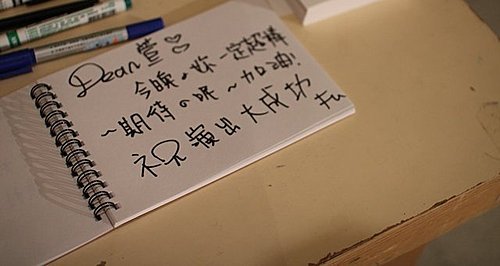 Dear 萱♡♡
今晚妳一定超棒
~期待の呢~加油!
祝演出大成功